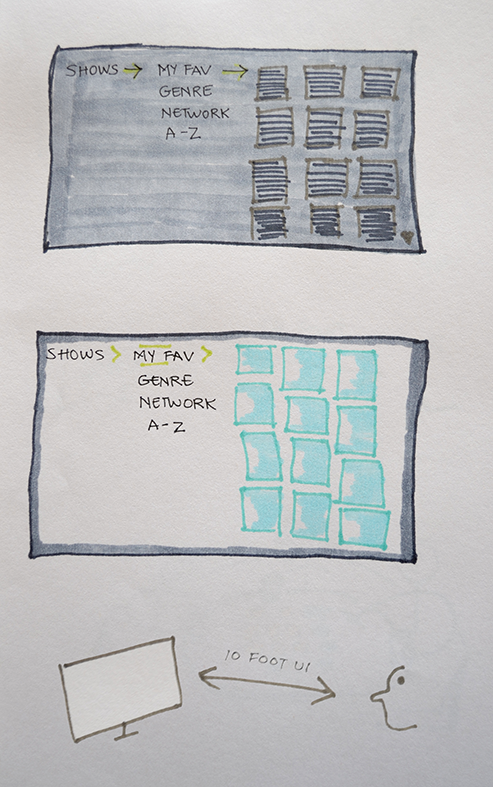 SHOWS → MY FAV →
GENRE
NETWORK
A-Z
SHOWS > MY FAV >
GENRE
NETWORK
A-Z
10 FOOT UI